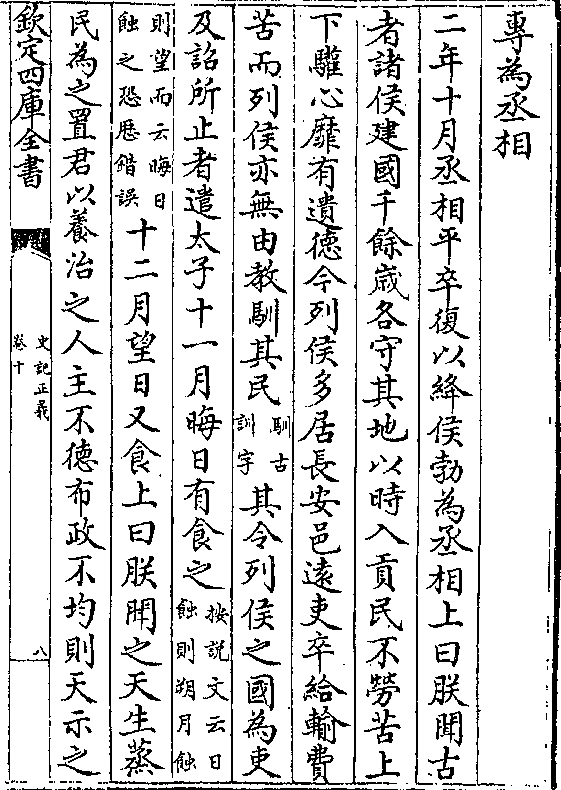 專為丞相
二年十月丞相平卒復以絳侯勃為丞相上曰朕聞古
者諸侯建國千餘歳各守其地以時入貢民不勞苦上
下驩心靡有遺德今列侯多居長安邑逺吏卒給輸費
苦而列侯亦無由教馴其民馴古訓字其令列侯之國為吏
及詔所止者遣太子十一月晦日有食之按說文云日蝕則朔月蝕
則望而云晦日蝕之恐厯錯誤十二月望日又食上曰朕聞之天生蒸
民為之置君以養治之人主不徳布政不均則天示之
欽定四庫全書
史記正義
卷十
八